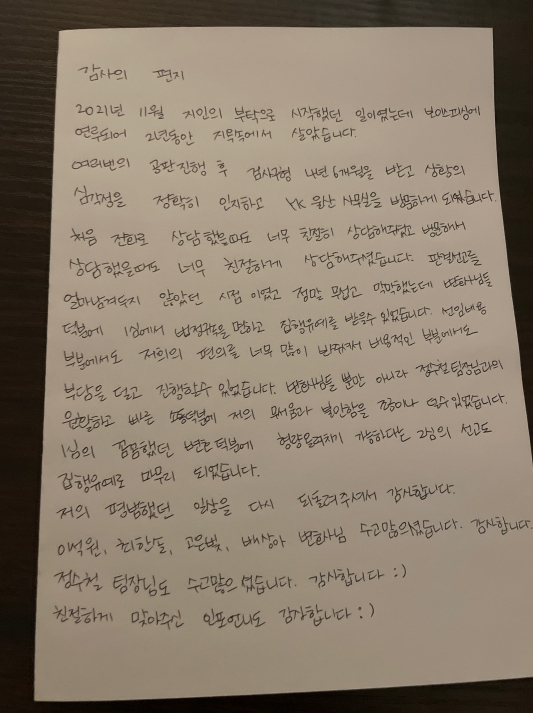 감사의 편지
2021년 11월 지인의 부탁으로 시작했던 일이였는데 보이스피싱에
연루되어 2년동안 지옥속에서 살았습니다.
여러번의 공판진행 후 검사구형 4년 6개월을 받고 상황의
심각성을 정확히 인지하고 YK 울산 사무실을 방문하게 되었습니다.
처음 전화로 상담했을때도 너무 친절히 상담해주셨고 방문해서
상담했을때도 너무 친절하게 상담해주셨습니다. 판결선고를
얼마남겨두지 않았던 시점 이였고 정말 무섭고 막막했는데 변호사님들
덕분에 1심에서 법정구속을 면하고 집행유예를 받을수 있었습니다. 선임비용
부분에서도 저희의 편의를 너무 많이 봐주셔서 비용적인 부분에서도
부담을 덜고 진행할수 있었습니다. 변호사님들 뿐만 아니라 정수철 팀장님과의
원활하고 빠른 소통덕분에 저의 무서움과 불안함을 조금이나 덜수 있었습니다.
1심의 꼼꼼했던 변론 덕분에 가능하다는 2심의 선고도
집행유예로 마무리 되었습니다.
저의 평범했던 일상을 다시 되돌려주셔서 감사합니다.
이석원, 최한돌, 고은빛, 배상아 변호사님 수고많으셨습니다. 감사합니다.
정수철 팀장님도 수고많으셨습니다. 감사합니다 :)
친절하게 맞아주신 인포언니도 감사합니다 :)